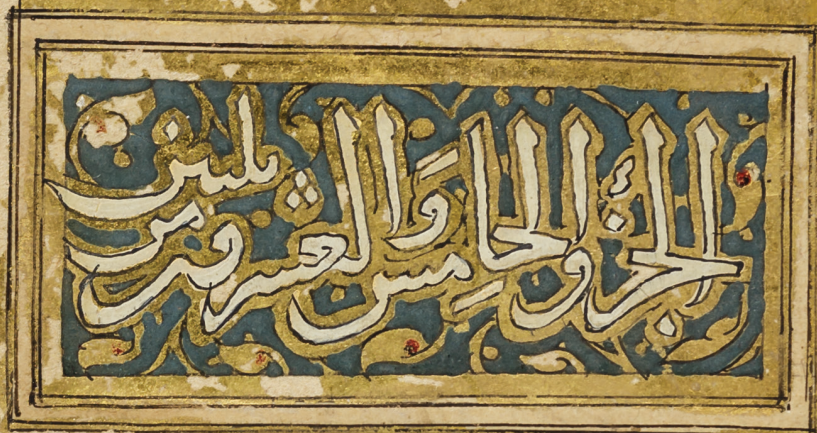 الجزو الخامس والعشرون من ثلثين